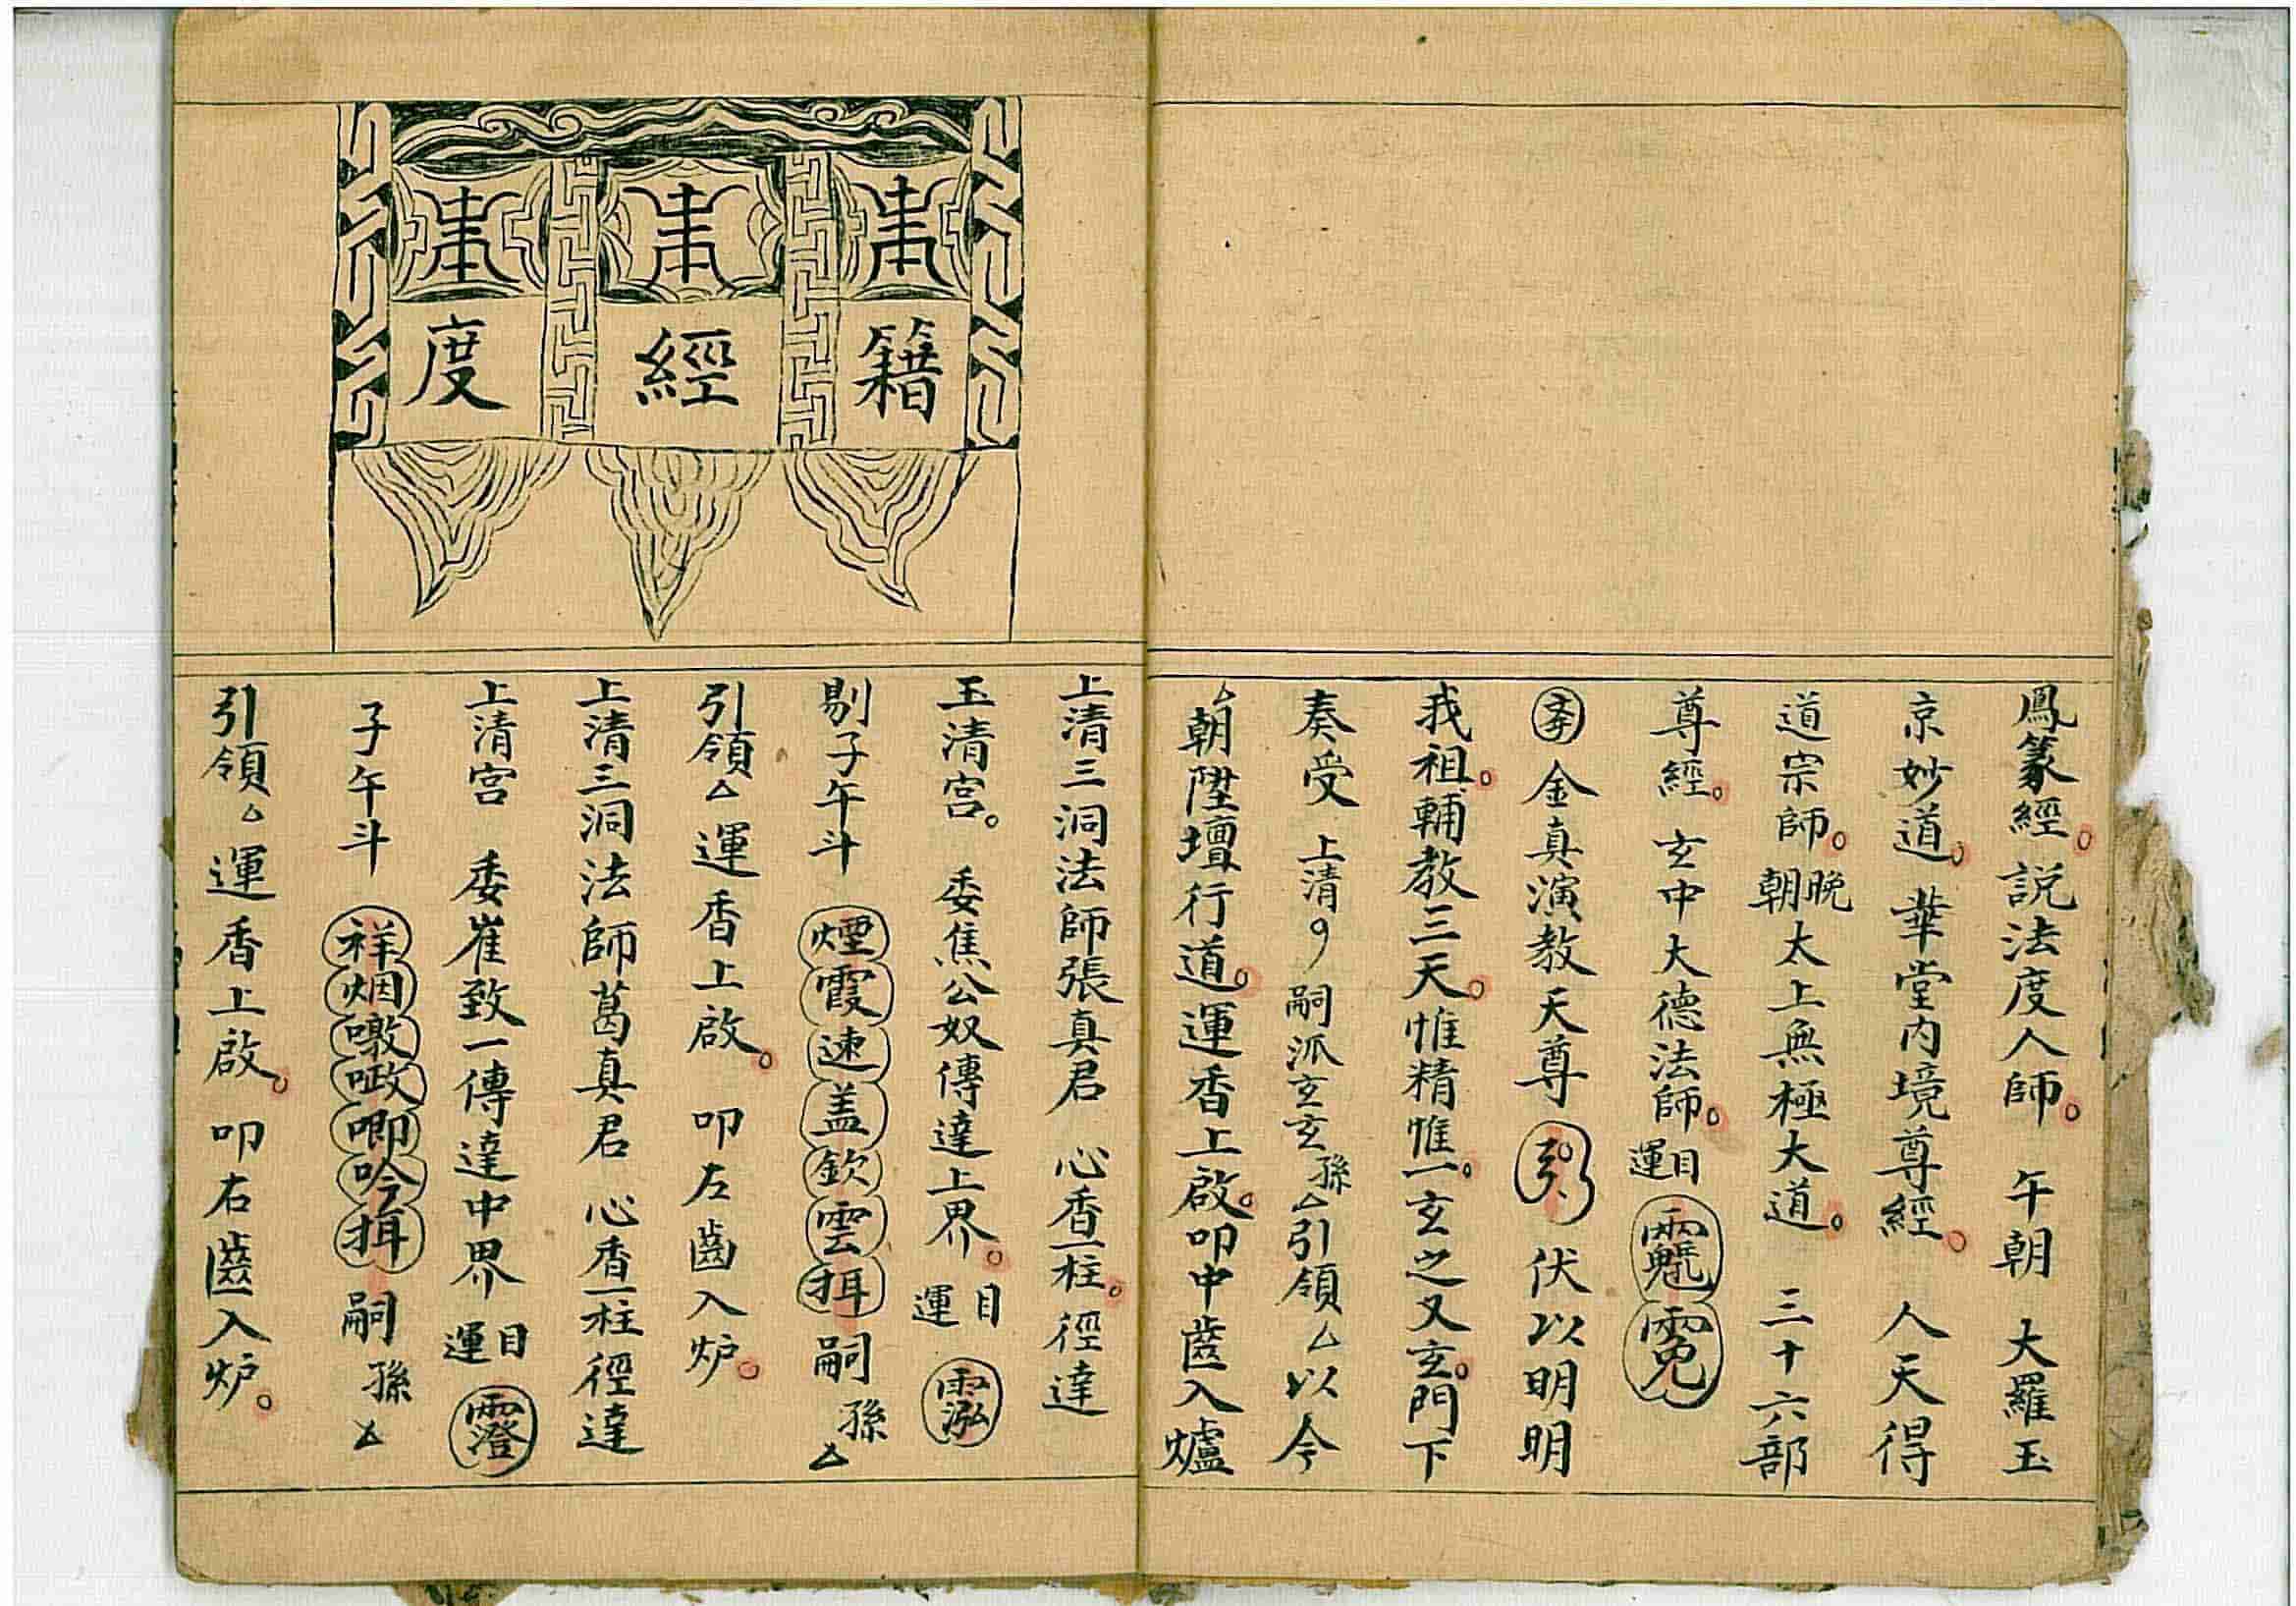 鳳篆經。説法度人師。午朝 大羅玉
京妙道。華堂内境尊經。人天得
道宗師。晚朝 太上無極大道。三十六部
尊經。玄中大德法師。目運
金真演教天尊 伏以明明
我祖。輔教三天。惟精惟一。玄之又玄。門下
奏受 上清 嗣派玄玄孫△引領△以今
△朝陞壇行道。運香上啟。叩中齒入爐
籍 經 度
上清三洞法師張真君 心香一柱。徑達
玉清宫。委焦公奴傳達上界。目運
剔子午斗 煙霞速盖欽雲揖 嗣孫△
引領△運香上啟。叩左齒入炉。
上清三洞法師葛真君 心香一柱徑達
上清宫 委崔致一傳達中界 目運
子午斗 祥烟噉呶唧吟揖 嗣孫△
引領△運香上啟。叩右齒入炉。